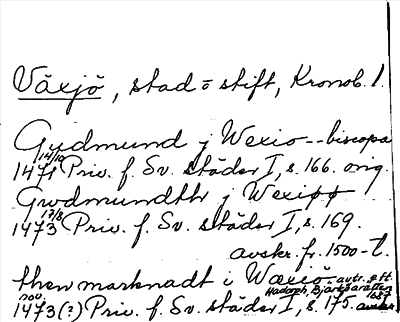 Växjö, stad o stift, Kronob. l.
Gudmund j Wexio -- biscopa
14/10
1471 Priv. f. Sv. städer I, s. 166. orig.
Gwdmundth j Wexiøø
17/8
1473 Priv. f. Sv. städer I, s. 169.
avskr. fr. 1500-t.
then marknadt i Wæxiö avtr. eft.
Hadorph, Bjärköarätten
nov. 1687
1473 (?) Priv. f. Sv. städer I, s. 175. avskr.